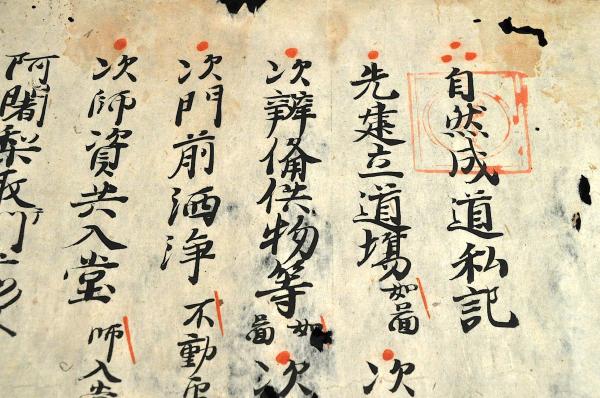 自然成道私記
先建立道場如圖 次
次辨備供物等如圖 次
次門前洒浄 不動
次師資共入堂 師入堂
阿闍梨取